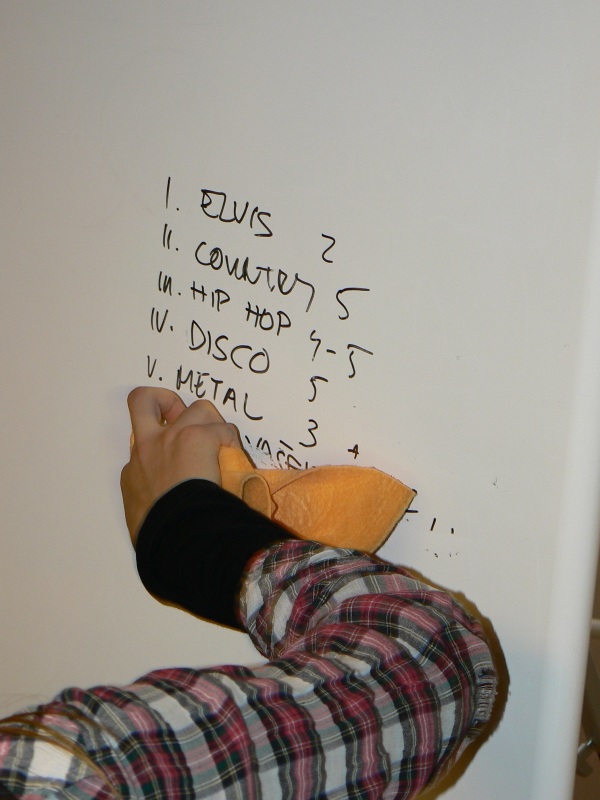 I. ELVIS 2
II. COUNTRY 5
III. HIP HOP 4-5
IV. DISCO 5
V. METAL 3